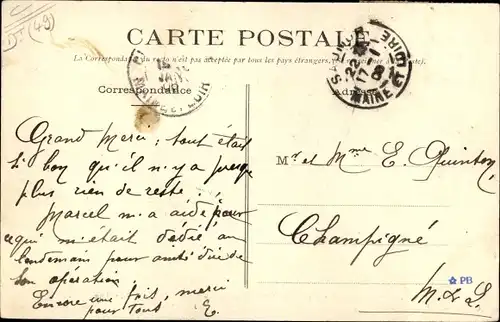 (49)
CARTE POSTALE
La Correspondance au recto n'est pas acceptée par tous les pays étrangers.
Correspondance
Adresse
MAINE ET LOIRE
Grand Merci, tout était
si bon qu'il n'y a presque
plus rien de reste.
Marcel m'a aidé pour
ce qui m'était dédié au
lendemain pour
son opération
Encore une fois, merci
pour tout E.
Mr et Mme E. Quinton
Champigné
M. & L.
PB